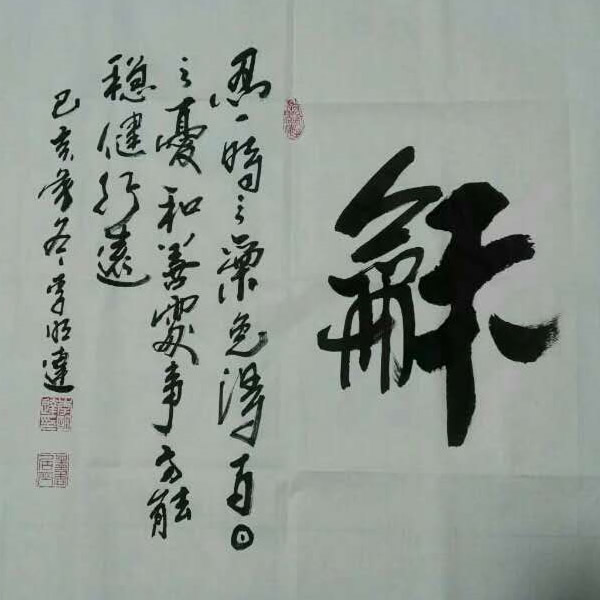 龢
忍一時之氣免得百日
之憂和善處事方能
穩健行遠
己亥冬李明達